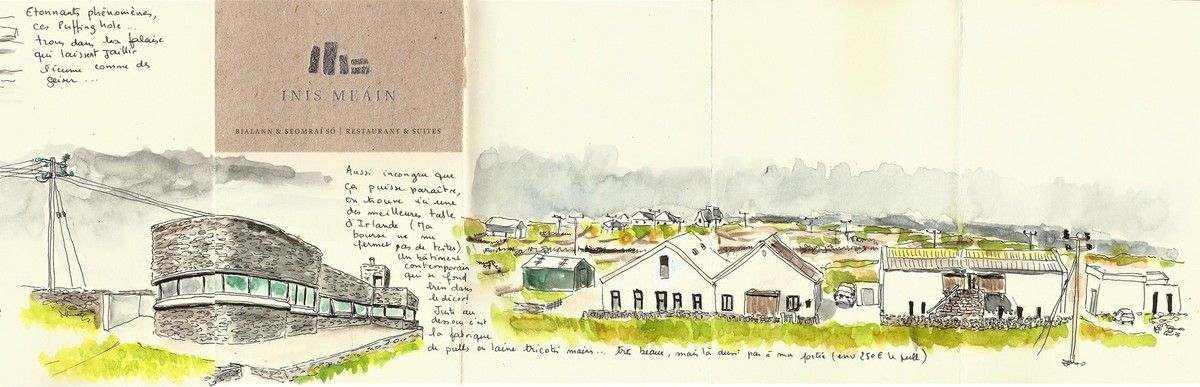 Etonnants phénomènes,
ces Puffing hole...
trous dans les falaise
qui laissent jaillir
l'écume comme des
geiser...
INIS MEÁIN
BIALANN & SEOMRAÍ SÓ | RESTAURANT & SUITES
Aussi incongru que
ça puisse paraître,
on trouve ici une
des meilleures table
d'Irlande (Ma
bourse ne me
permet pas de tester)
Un bâtiment
contemporain
qui se fond
bien dans
le décor.
Juste au
dessous c'est
la fabrique
de pulls en laine tricotés mains... très beaux, mais là aussi pas à ma portée (env 250€ le pull)